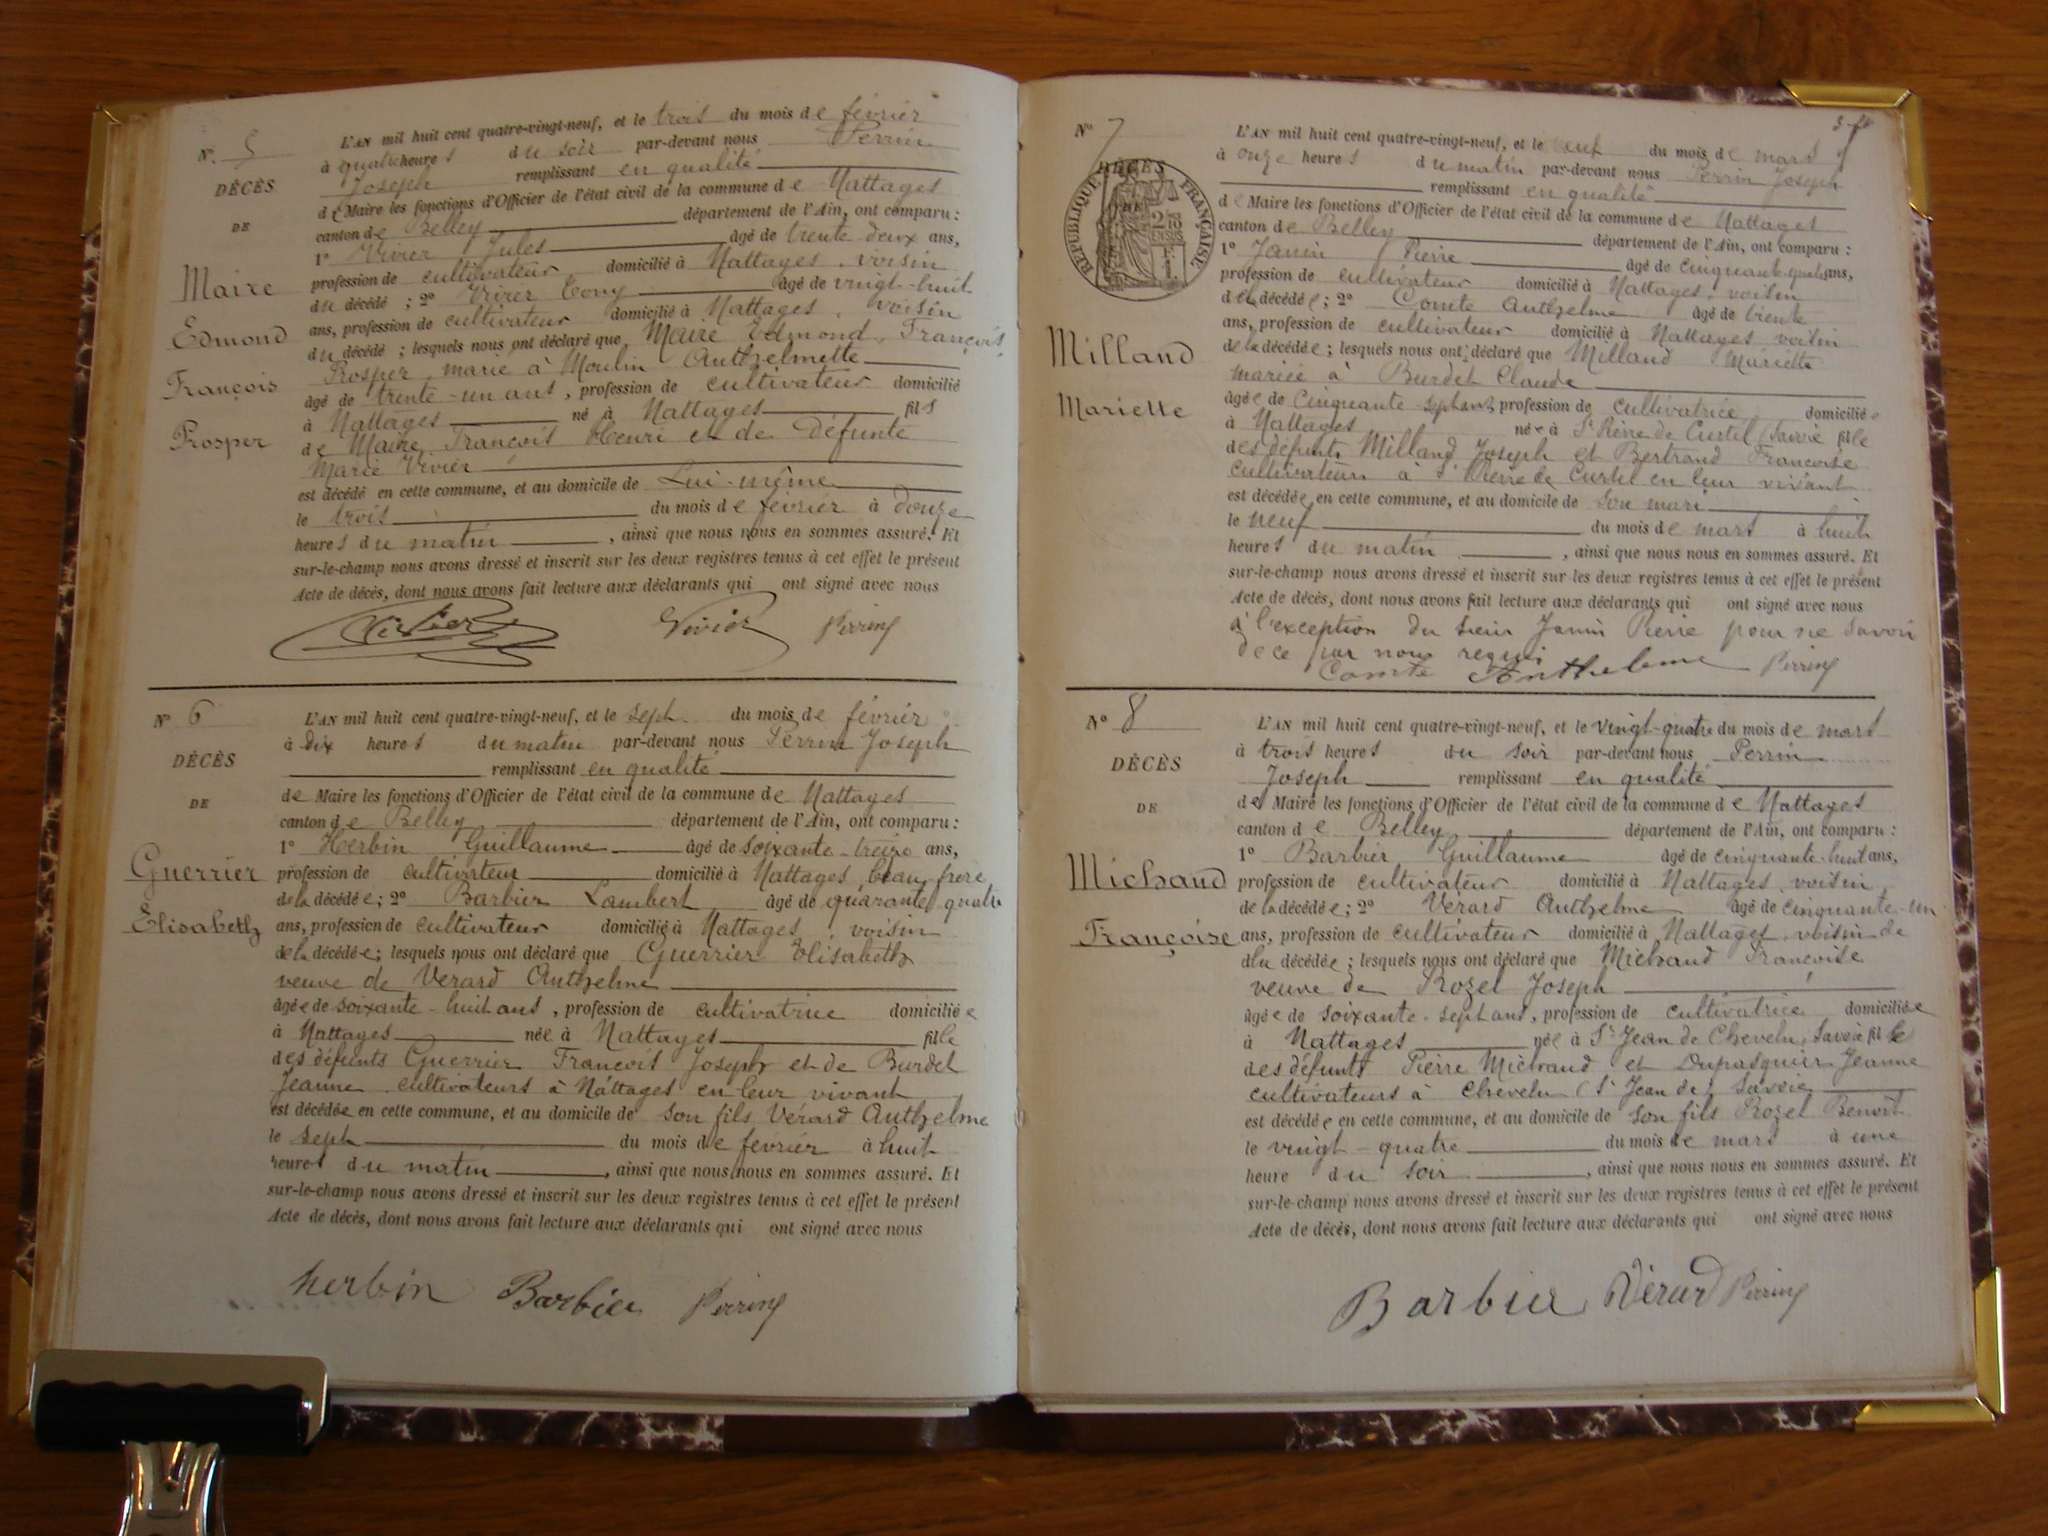 N° 5
DÉCÈS
DE
Maire
Edmond
François
Prosper
L'AN mil huit cent quatre-vingt-neuf, et le trois du mois de février
à quatre heures du soir par-devant nous Perrin
Joseph remplissant en qualité
de Maire les fonctions d'Officier de l'état civil de la commune de Nattages
canton de Belley département de l'Ain, ont comparu :
1° Vivier Jules âgé de trente deux ans,
profession de cultivateur domicilié à Nattages, voisin
du décédé ; 2° Vivier Tony âgé de vingt-huit
ans, profession de cultivateur domicilié à Nattages, voisin
du décédé ; lesquels nous ont déclaré que Maire Edmond, François
Prosper, marié à Moulin Anthelmette
âgé de trente-un ans, profession de cultivateur domicilié
à Nattages né à Nattages fils
de Maire François Henri et de Défunte
Marie Vivier
est décédé en cette commune, et au domicile de Lui-même
le trois du mois de février à douze
heures du matin, ainsi que nous nous en sommes assuré. Et
sur-le-champ nous avons dressé et inscrit sur les deux registres tenus à cet effet le présent
Acte de décès, dont nous avons fait lecture aux déclarants qui ont signé avec nous
Vivier Vivier Perrin J
N° 6
DÉCÈS
DE
Guerrier
Elisabeth
L'AN mil huit cent quatre-vingt-neuf, et le sept du mois de février
à dix heures du matin par-devant nous Perrin Joseph
remplissant en qualité
de Maire les fonctions d'Officier de l'état civil de la commune de Nattages
canton de Belley département de l'Ain, ont comparu :
1° Herbin Guillaume âgé de soixante-treize ans,
profession de cultivateur domicilié à Nattages, beau frère
de la décédée ; 2° Barbier Lambert âgé de quarante quatre
ans, profession de cultivateur domicilié à Nattages, voisin
de la décédée ; lesquels nous ont déclaré que Guerrier Elisabeth
veuve de Verard Anthelme
âgée de soixante-huit ans, profession de cultivatrice domiciliée
à Nattages née à Nattages fille
des défunts Guerrier François Joseph et de Burdet
Jeanne cultivateurs à Nattages en leur vivant
est décédée en cette commune, et au domicile de son fils Vérard Anthelme
le sept du mois de février à huit
heures du matin, ainsi que nous nous en sommes assuré. Et
sur-le-champ nous avons dressé et inscrit sur les deux registres tenus à cet effet le présent
Acte de décès, dont nous avons fait lecture aux déclarants qui ont signé avec nous
herbin Barbier Perrin J
N° 7
DÉCÈS
DE
RÉPUBLIQUE FRANÇAISE
Milland
Mariette
L'AN mil huit cent quatre-vingt-neuf, et le neuf du mois de mars
à onze heures du matin par-devant nous Perrin Joseph
remplissant en qualité
de Maire les fonctions d'Officier de l'état civil de la commune de Nattages
canton de Belley département de l'Ain, ont comparu :
1° Janin Pierre âgé de cinquante-quatre ans,
profession de cultivateur domicilié à Nattages, voisin
de la décédée ; 2° Comte Anthelme âgé de trente
ans, profession de cultivateur domicilié à Nattages voisin
de la décédée ; lesquels nous ont déclaré que Milland Mariette
mariée à Burdet Claude
âgée de Cinquante-sept ans, profession de cultivatrice domiciliée
à Nattages née à St Pierre de Curtel (Savoie fille
des défunts Milland Joseph et Bertrand Françoise
cultivateurs à St Pierre de Curtel en leur vivant
est décédée en cette commune, et au domicile de son mari
le neuf du mois de mars à huit
heures du matin, ainsi que nous nous en sommes assuré. Et
sur-le-champ nous avons dressé et inscrit sur les deux registres tenus à cet effet le présent
Acte de décès, dont nous avons fait lecture aux déclarants qui ont signé avec nous
à l'exception du sieur Janin Pierre pour ne savoir
de ce par nous requi
Comte Anthelme Perrin J
N° 8
DÉCÈS
DE
Michaud
Françoise
L'AN mil huit cent quatre-vingt-neuf, et le vingt-quatre du mois de mars
à trois heures du soir par-devant nous Perrin
Joseph remplissant en qualité
de Maire les fonctions d'Officier de l'état civil de la commune de Nattages
canton de Belley département de l'Ain, ont comparu :
1° Barbier Guillaume âgé de cinquante-huit ans,
profession de cultivateur domicilié à Nattages, voisin
de la décédée ; 2° Vérard Anthelme âgé de cinquante-un
ans, profession de cultivateur domicilié à Nattages, voisin de
du décédée ; lesquels nous ont déclaré que Michaud Françoise
veuve de Rozel Joseph
âgée de soixante-sept ans, profession de cultivatrice domiciliée
à Nattages née à St Jean de Chevelu, Savoie fille
des défunts Pierre Michaud et Dupasquier Jeanne
cultivateurs à Chevelu (St Jean de) Savoie
est décédée en cette commune, et au domicile de son fils Rozel Benoît
le vingt-quatre du mois de mars à une
heure du soir, ainsi que nous nous en sommes assuré. Et
sur-le-champ nous avons dressé et inscrit sur les deux registres tenus à cet effet le présent
Acte de décès, dont nous avons fait lecture aux déclarants qui ont signé avec nous
Barbier Vérard Perrin J